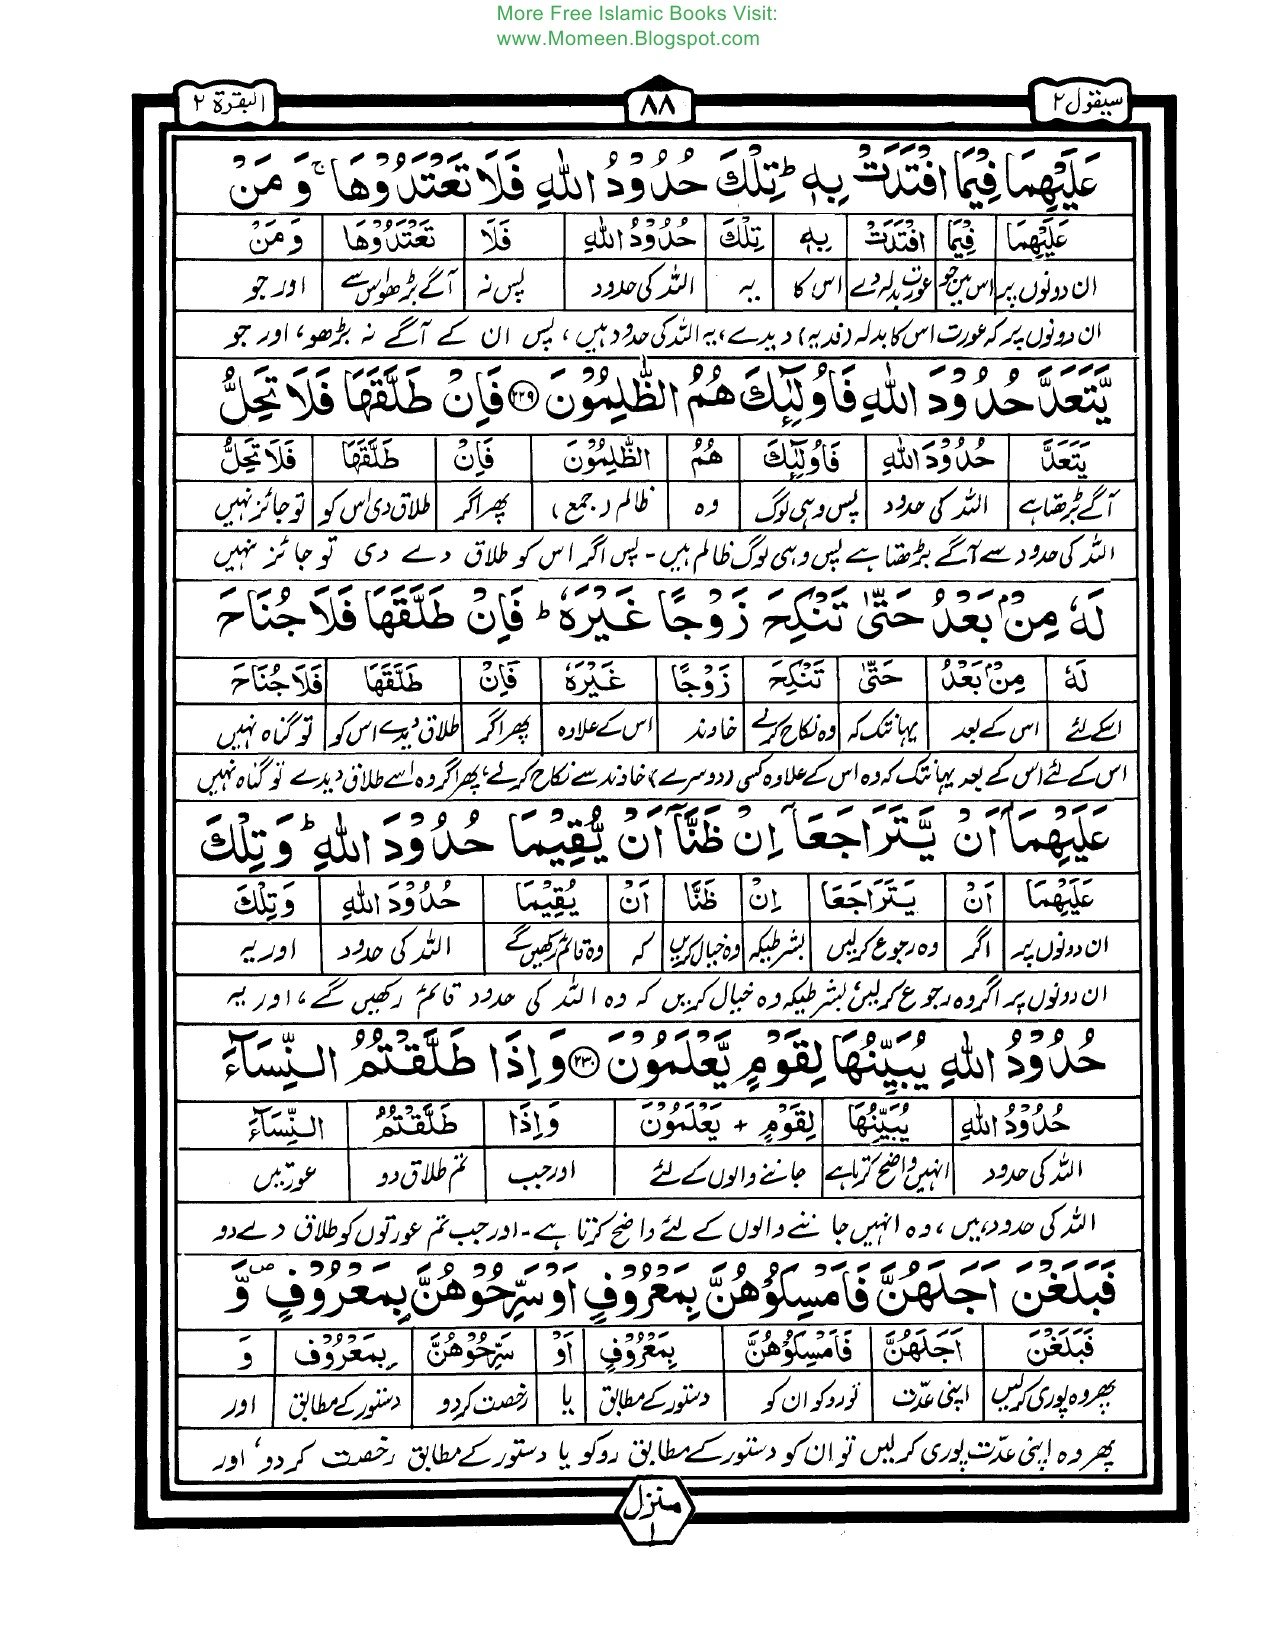 More Free Islamic Books Visit:
www.Momeen.Blogspot.com
سيقول ٢ ٨٨ البقرة ٢
عَلَيْهِمَا فِيْمَا افْتَدَتْ بِهٖ ؕ تِلْكَ حُدُوْدُ اللّٰهِ فَلَا تَعْتَدُوْهَا ۚ وَمَنْ
عَلَيْهِمَا فِيْمَا افْتَدَتْ بِهٖ تِلْكَ حُدُوْدُ اللّٰهِ فَلَا تَعْتَدُوْهَا وَمَنْ
ان دونوں پر اس میں جو عورت بدلہ دے اس کا یہ اللہ کی حدود پس نہ آگے بڑھو اس سے اور جو
ان دونوں پر کہ عورت اس کا بدلہ (فدیہ) دیدے، یہ اللہ کی حدود ہیں، پس ان کے آگے نہ بڑھو، اور جو
يَّتَعَدَّ حُدُوْدَ اللّٰهِ فَاُولٰٓئِكَ هُمُ الظّٰلِمُوْنَ ﴿۲۲۹﴾ فَاِنْ طَلَّقَهَا فَلَا تَحِلُّ
يَتَعَدَّ حُدُوْدَ اللّٰهِ فَاُولٰٓئِكَ هُمُ الظّٰلِمُوْنَ فَاِنْ طَلَّقَهَا فَلَا تَحِلُّ
آگے بڑھتا ہے اللہ کی حدود پس وہی لوگ وہ ظالم (جمع) پھر اگر طلاق دی اس کو تو جائز نہیں
اللہ کی حدود سے آگے بڑھتا ہے پس وہی لوگ ظالم ہیں۔ پس اگر اس کو طلاق دے دی تو جائز نہیں
لَهٗ مِنْۢ بَعْدُ حَتّٰى تَنْكِحَ زَوْجًا غَيْرَهٗ ؕ فَاِنْ طَلَّقَهَا فَلَا جُنَاحَ
لَهٗ مِنْۢ بَعْدُ حَتّٰى تَنْكِحَ زَوْجًا غَيْرَهٗ فَاِنْ طَلَّقَهَا فَلَا جُنَاحَ
اسکے لئے اس کے بعد یہانتک کہ وہ نکاح کرلے خاوند اس کے علاوہ پھر اگر طلاق دیدے اس کو تو گناہ نہیں
اس کے لئے اس کے بعد یہانتک کہ وہ اس کے علاوہ کسی (دوسرے) خاوند سے نکاح کرلے، پھر اگر وہ اسے طلاق دیدے تو گناہ نہیں
عَلَيْهِمَاۤ اَنْ يَّتَرَاجَعَاۤ اِنْ ظَنَّاۤ اَنْ يُّقِيْمَا حُدُوْدَ اللّٰهِ ؕ وَتِلْكَ
عَلَيْهِمَا اَنْ يَتَرَاجَعَا اِنْ ظَنَّا اَنْ يُقِيْمَا حُدُوْدَ اللّٰهِ وَتِلْكَ
ان دونوں پر اگر وہ رجوع کرلیں بشرطیکہ وہ خیال کریں کہ وہ قائم رکھیں گے اللہ کی حدود اور یہ
ان دونوں پر اگر وہ رجوع کرلیں بشرطیکہ وہ خیال کریں کہ وہ اللہ کی حدود قائم رکھیں گے، اور یہ
حُدُوْدُ اللّٰهِ يُبَيِّنُهَا لِقَوْمٍ يَّعْلَمُوْنَ ﴿۲۳۰﴾ وَاِذَا طَلَّقْتُمُ النِّسَآءَ
حُدُوْدُ اللّٰهِ يُبَيِّنُهَا لِقَوْمٍ + يَعْلَمُوْنَ وَاِذَا طَلَّقْتُمُ النِّسَآءَ
اللہ کی حدود انہیں واضح کرتا ہے جاننے والوں کے لئے اور جب تم طلاق دو عورتیں
اللہ کی حدود ہیں، وہ انہیں جاننے والوں کے لئے واضح کرتا ہے۔ اور جب تم عورتوں کو طلاق دے دو
فَبَلَغْنَ اَجَلَهُنَّ فَاَمْسِكُوْهُنَّ بِمَعْرُوْفٍ اَوْ سَرِّحُوْهُنَّ بِمَعْرُوْفٍ ۪ وَّ
فَبَلَغْنَ اَجَلَهُنَّ فَاَمْسِكُوْهُنَّ بِمَعْرُوْفٍ اَوْ سَرِّحُوْهُنَّ بِمَعْرُوْفٍ وَ
پھر وہ پوری کرلیں اپنی عدّت تو روکو ان کو دستور کے مطابق یا رخصت کردو دستور کے مطابق اور
پھر وہ اپنی عدّت پوری کرلیں تو ان کو دستور کے مطابق روکو یا دستور کے مطابق رخصت کردو، اور
منزل
١